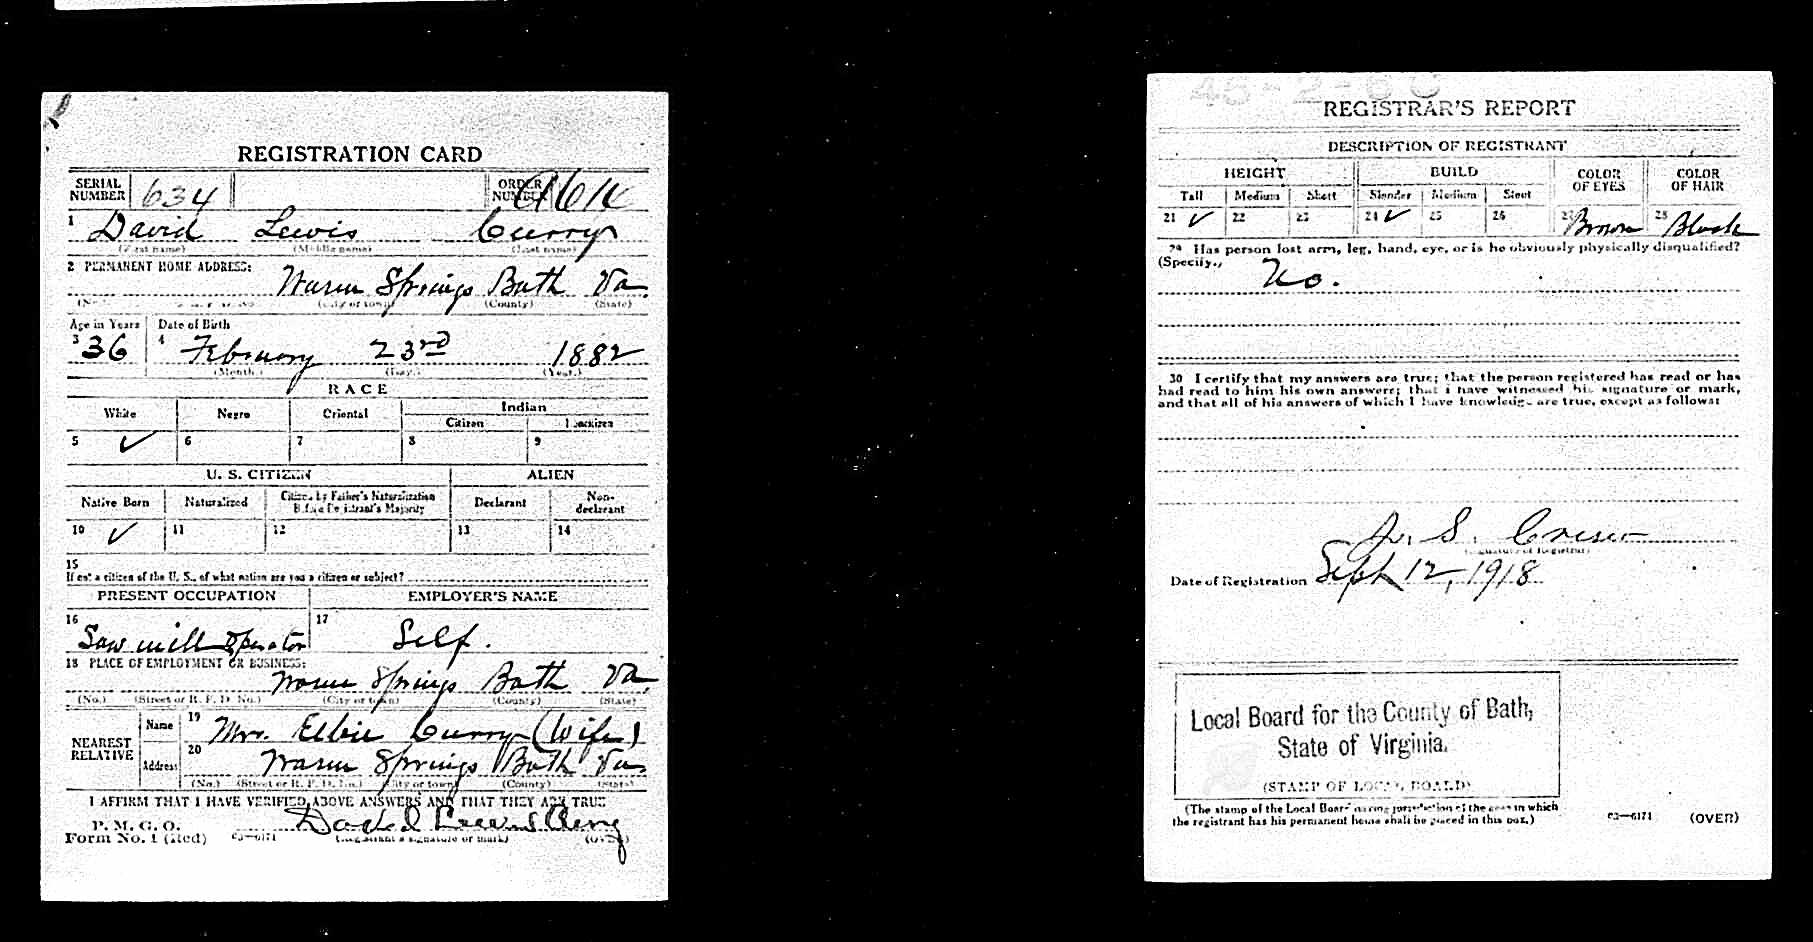 REGISTRATION CARD
SERIAL NUMBER 634 ORDER NUMBER
1 David Lewis Curry
(First name) (Middle name) (Last name)
2 PERMANENT HOME ADDRESS:
Warm Springs Bath Va.
(No.) (City or town) (County) (State)
Age in Years Date of Birth
3 36 4 February 23rd 1882
(Month.) (Day.) (Year.)
RACE
White Negro Oriental Indian
Citizen
5 ✓ 6 7 8 9
U. S. CITIZEN ALIEN
Native Born Naturalized Citizen by Father's Naturalization Before Registrant's Majority Declarant Non-declarant
10 ✓ 11 12 13 14
15
If not a citizen of the U. S., of what nation are you a citizen or subject?
PRESENT OCCUPATION EMPLOYER'S NAME
16 Saw mill operator 17 Self.
18 PLACE OF EMPLOYMENT OR BUSINESS:
Warm Springs Bath Va.
(No.) (Street or R. F. D. No.) (City or town) (County) (State)
NEAREST RELATIVE Name 19 Mrs. Elbie Curry (Wife)
Address 20 Warm Springs Bath Va.
(No.) (Street or R. F. D. No.) (City or town) (County) (State)
I AFFIRM THAT I HAVE VERIFIED ABOVE ANSWERS AND THAT THEY ARE TRUE
P. M. G. O.
Form No. 1 (Red) 03—6171 David Lewis Curry
(Registrant's signature or mark) (OVER)
REGISTRAR'S REPORT
DESCRIPTION OF REGISTRANT
HEIGHT BUILD COLOR OF EYES COLOR OF HAIR
Tall Medium Short Slender Medium Stout
21 ✓ 22 23 24 ✓ 25 26 27 Brown 28 Black
29 Has person lost arm, leg, hand, eye, or is he obviously physically disqualified?
(Specify.) No.
30 I certify that my answers are true; that the person registered has read or has
had read to him his own answers; that I have witnessed his signature or mark,
and that all of his answers of which I have knowledge are true, except as follows:
S.
(Signature of Registrar)
Date of Registration Sept 12, 1918
Local Board for the County of Bath,
State of Virginia.
(STAMP OF LOCAL BOARD)
(The stamp of the Local Board having jurisdiction of the area in which
the registrant has his permanent home shall be placed in this box.)
03—6171 (OVER)